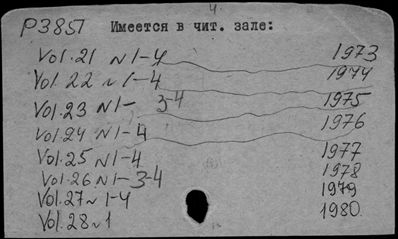 4.
P3851 Имеется в чит. зале:
Vol.21 N1-4 1973
Vol 22 N1-4 1974
Vol.23 N1- 3-4 1975
Vol.24 N1-4 1976
Vol.25 N1-4 1977
Vol.26 N1-3-4 1978
Vol.27 N1-4 1979
Vol.28 N1 1980.